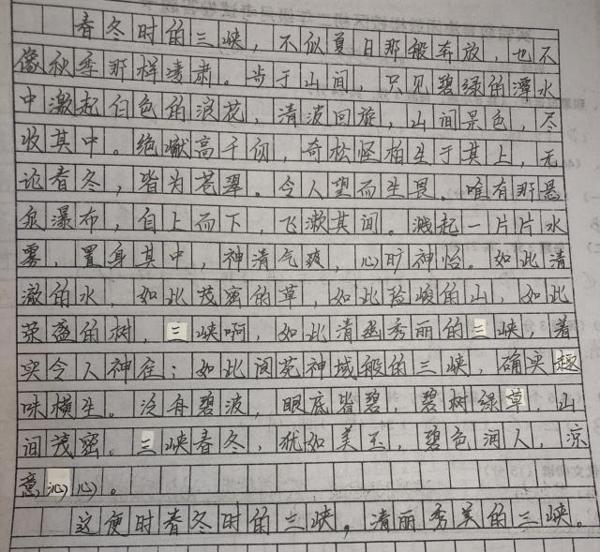 春冬时的三峡，不似夏日那般奔放，也不
像秋季那样凄肃。步于山间，只见碧绿的潭水
中激起白色的浪花，清波回旋，山间景色，尽
收其中。绝巘高千仞，奇松怪柏生于其上，无
论春冬，皆为苍翠。令人望而生畏。唯有那悬
泉瀑布，自上而下，飞漱其间。溅起一片片水
雾，置身其中，神清气爽，心旷神怡。如此清
澈的水，如此茂密的草，如此险峻的山，如此
荣盛的树，三峡啊，如此清幽秀丽的三峡，着
实令人神往；如此阆苑神域般的三峡，确实趣
味横生。泛舟碧波，眼底皆碧，碧树绿草，山
间茂密。三峡春冬，犹如美玉，碧色润人，凉
意沁心。
这便时春冬时的三峡，清丽秀美的三峡。